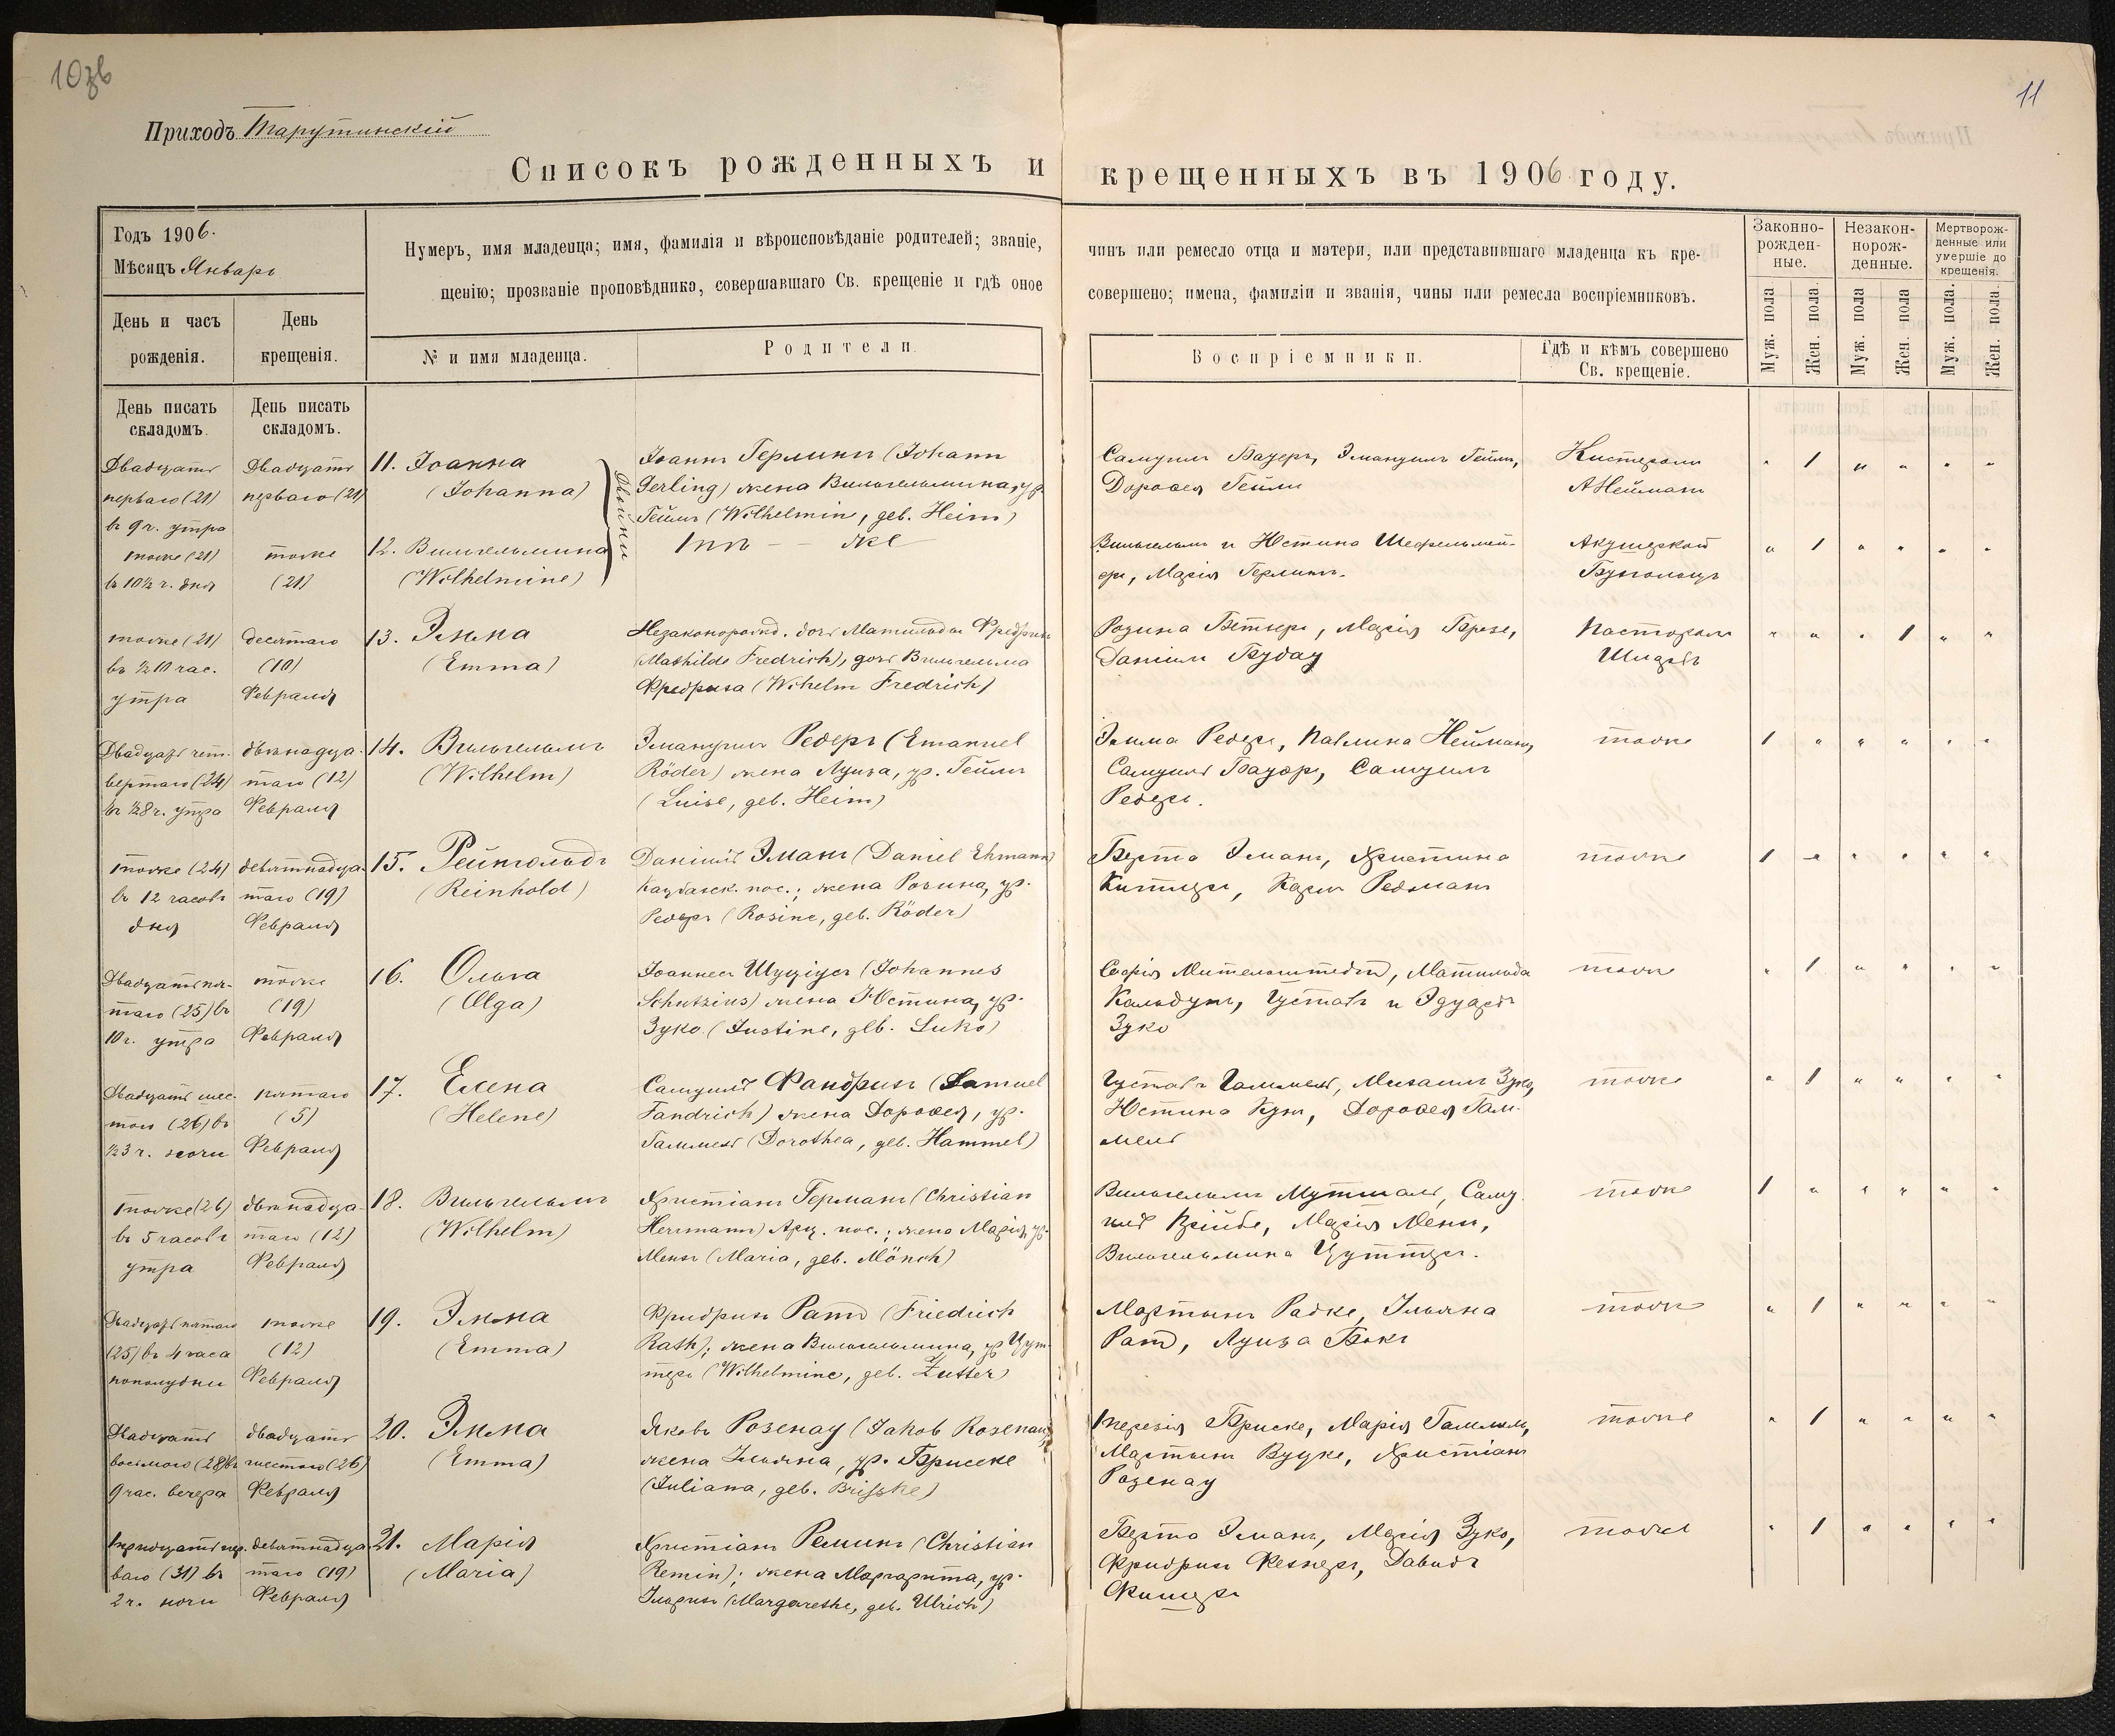 10об
11
Приходъ Тарутинскій
Списокъ рожденныхъ и крещенныхъ въ 1906 году.
Годъ 1906.
Мѣсяцъ Январь
День и часъ рожденія.
День крещенія.
Нумеръ, имя младенца; имя, фамилія и вѣроисповѣданіе родителей; званіе, чинъ или ремесло отца и матери, или представившаго младенца къ кре-
щенію; прозваніе проповѣдника, совершавшаго Св. крещеніе и гдѣ оное совершено; имена, фамиліи и званія, чины или ремесла воспріемниковъ.
№ и имя младенца.
Родители.
Воспріемники.
Гдѣ и кѣмъ совершено
Св. крещеніе.
Законно-
рожден-
ные.
Незакон-
норож-
денные.
Мертворож-
денные или
умершіе до
крещенія.
Муж. пола
Жен. пола.
Муж. пола
Жен. пола
Муж. пола.
Жен. пола.
День писать
складомъ.
День писать
складомъ.
Двадцать
перваго (21)
въ 9 ч. утра
Двадцать
перваго (21)
11. Іоанна
(Johanna)
Двойни
Іоаннъ Герлингъ (Johann
Gerling) жена Вильгельмина, ур.
Геймъ (Wilhelmin, geb. Heim)
Самуилъ Бауеръ, Эмануилъ Геймъ,
Доровея Геймъ
Кистеромъ
А Нейманъ
" 1 " " " "
тоже (21)
въ 10½ ч. дня
тоже
(21)
12. Вильгельмина
(Wilhelmine)
Тѣ — же
Вильгельмъ и Юстина Шефельмей-
еръ, Марія Герлингъ.
Акушеркой
" 1 " " " "
тоже (21)
въ ½10 час.
утра
десятаго
(10)
Февраля
13. Эмма
(Emma)
Незаконорожд. дочь Матильды Фредрихъ
(Mathilde Fredrich), дочь Вильгельма
Фредриха (Wihelm Fredrich)
Розина Бетхеръ, Марія Брезе,
Даніилъ Будау
Пасторомъ
" " " 1 " "
Двадцать чет-
вертаго (24)
въ ½8 ч. утра
двѣнадца-
таго (12)
Февраля
14. Вильгельмъ
(Wilhelm)
Эмануилъ Редеръ (Emanuel
Röder) жена Луиза, ур. Геймъ
(Luise, geb. Heim)
Эмма Редеръ, Павлина Нейманъ,
Самуилъ Бауэръ, Самуилъ
Редеръ.
тоже
1 " " " " "
тоже (24)
въ 12 часовъ
дня
девятнадца-
таго (19)
Февраля
15. Рейнгольдъ
(Reinhold)
Даніилъ Эманъ (Daniel Ehmann)
Каубанск. пос.; жена Розина, ур.
Редеръ (Rosine, geb. Röder)
Берта Эманъ, Христина
Китлеръ, Карлъ Редманъ
тоже
1 " " " " "
Двадцать пя-
таго (25) въ
10 ч. утра
тоже
(19)
Февраля
16. Ольга
(Olga)
Іоаннесъ Шуціусъ (Johannes
Schutzius) жена Юстина, ур.
Зуко (Justine, geb. Suko)
Софія Мительштедтъ, Матильда
Кальдунъ, Густавъ и Эдуардъ
Зуко
тоже
" 1 " " " "
Двадцать шес-
таго (26) въ
½3 ч. ночи
пятаго
(5)
Февраля
17. Елена
(Helene)
Самуилъ Фандрихъ (Samuel
Fandrich) жена Доровея, ур.
Гаммель (Dorothea, geb. Hammel)
Густавъ Гаммель, Михаилъ Зуко,
Юстина Кунъ, Доровея Гам-
мель
тоже
" 1 " " " "
тоже (26)
въ 5 часовъ
утра
двѣнадца-
таго (12)
Февраля
18. Вильгельмъ
(Wilhelm)
Христіанъ Германъ (Christian
Herrmann) Арц. пос.; жена Марія, ур.
Менхъ (Maria, geb. Mönch)
Вильгельмъ Мутшалъ, Саму-
илъ Крійбе, Марія Менхъ,
Вильгельмина Цуттеръ.
тоже
1 " " " " "
Двадцать пятаго
(25) въ 4 часа
пополудни
тоже
(12)
Февраля
19. Эмма
(Emma)
Фридрихъ Ратъ (Friedrich
Rath); жена Вильгельмина, ур Цут-
теръ (Wilhelmine, geb. Zutter)
Мартынъ Радке, Ульяна
Ратъ, Луиза Бокъ
тоже
" 1 " " " "
Двадцать
восьмого (28) въ
9 час. вечера
двадцать
шестого (26)
Февраля
20. Эмма
(Emma)
Яковъ Розенау (Jakob Rosenau);
жена Ульяна, ур. Бриске
(Juliana, geb. Briſske)
Терезія Бриске, Марія Гаммель,
Мартынъ Вуцке, Христіанъ
Розенау
тоже
" 1 " " " "
Тридцать пер-
ваго (31) въ
2 ч. ночи
девятнадца-
таго (19)
Февраля
21. Марія
(Maria)
Христіанъ Реминъ (Christian
Remin); жена Маргарита, ур.
Ульрихъ (Margarethe, geb. Ulrich)
Берта Эманъ, Марія Зуко,
Фридрихъ Фезнеръ, Давидъ
Фишеръ
тоже
" 1 " " " "